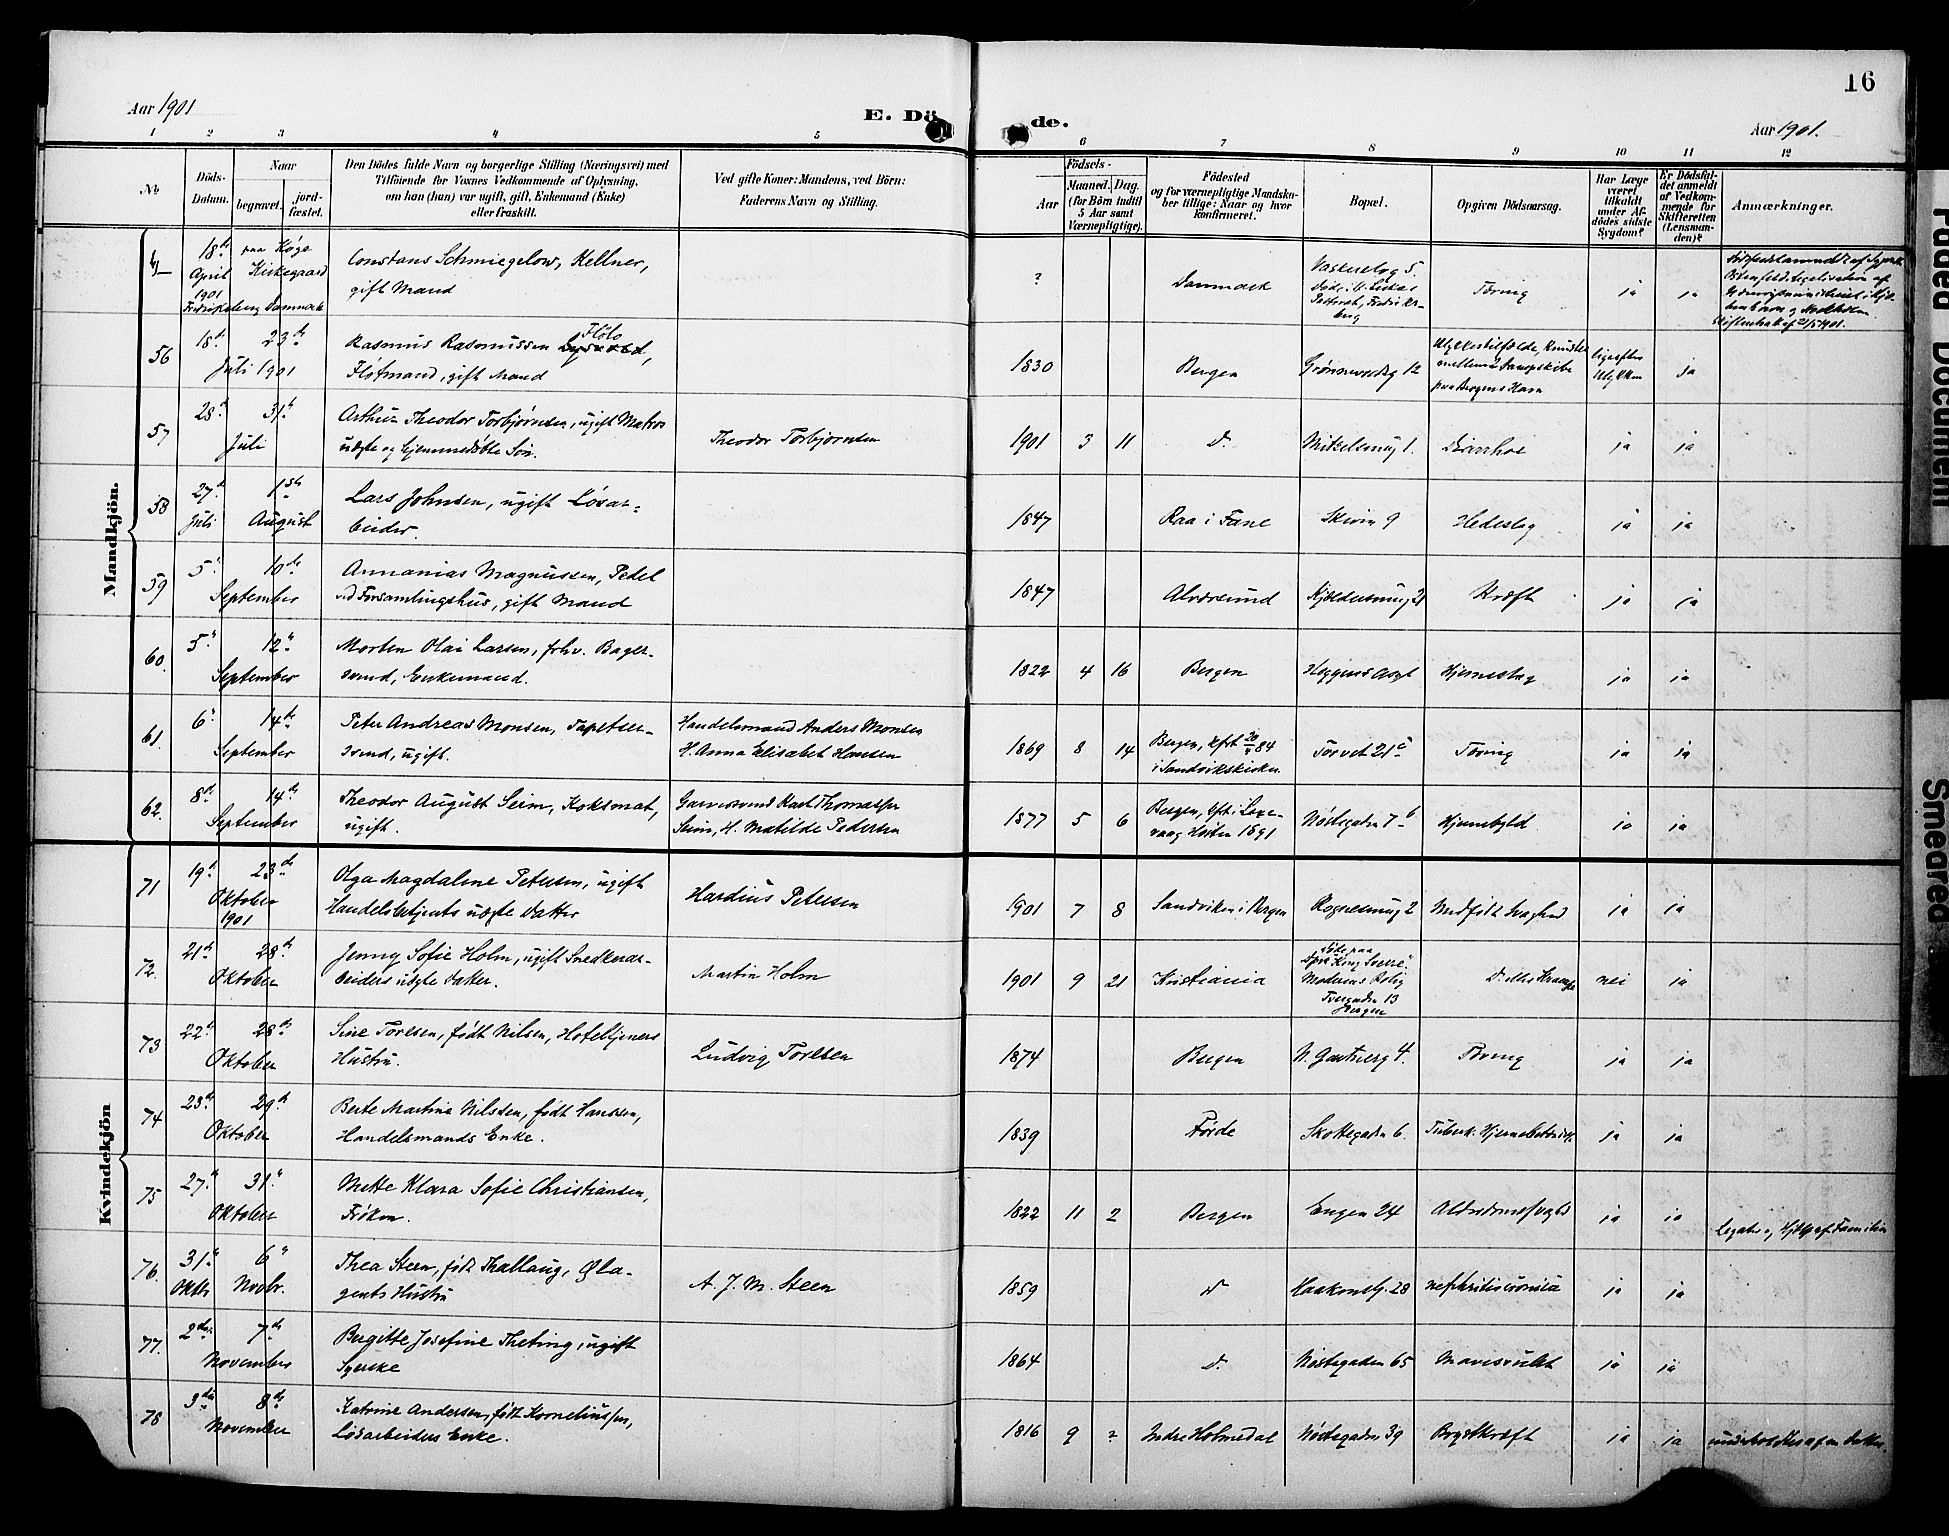 16
Aar 1901
E. Dö de.
Aar 1901.
1 2 3 4 5 6 7 8 9 10 11 12
No
Döds-Datum.
Naar
begravet.
jord-fæstet.
Den Dödes fulde Navn og borgerlige Stilling (Næringsvei) med
Tilföiende for Voxnes Vedkommende af Oplysning,
om han (hun) var ugift, gift, Enkemand (Enke)
eller fraskilt.
Ved gifte Koner: Mandens, ved Börn:
Faderens Navn og Stilling.
Födsels-
Aar
Maaned. Dag.
(for Börn indtil
5 Aar samt
Værnepligtige).
Födested
og for værnepligtige Mandskaber
tillige: Naar og hvor
konfirmeret.
Bopæl.
Opgiven Dödsaarsag.
Har Læge
været
tilkaldt
under Afdödes
sidste
Sygdom?
Er Dödsfaldet
anmeldt
af Vedkommende
for
Skifteretten
(Lensmanden)?
Anmærkninger.
Mandkjön.
18de April 1901 paa Køge Kirkegaard
Constans Schmiegelow, Kellner,
gift Mand
? Danmark Tæring ja ja
56 18de 23de Juli 1901
Rasmus Rasmussen Fløtmand, gift Mand
1830 Bergen 12 ja
57 28de 31te Juli
Arthur Theodor Torbjørnsen, ugift Matros
uægte og hjemmedøbte Søn.
Theodor Torbjørnsen
1901 3 11 Do Diarrhoe ja ja
58 27de Juli 1ste August
Lars Johnsen, ugift Løsar-
beider.
1847 Raa i Fane Skivin 9 Hedeslag ja ja
59 5te 10de September
Annanias Magnussen, Pedel
ved Forsamlingshus, gift Mand
1847 Alversund Kræft ja ja
60. 5te 12te September
Morten Olai Larsen, fhv. Bager-
svend, Enkemand.
1822 4 16 Bergen Hjerneslag ja ja
61. 6te 14de September
Peter Andreas Monsen, Tapetser-
svend, ugift.
Handelsmand Anders Monsen
H. Anna Elisabet Hansen
1869 8 14 Bergen, kfrt 84
i Sandvikskirken
Torvet 21 Tæring ja ja
62. 8de 14de September
Theodor August Seim, Koksmat,
ugift.
Garversvend Karl Thomassen
Seim, H. Matilde Pedersen
1877 5 6 Bergen, Høsten 1891
Nøstegaden 7 ja ja
Kvindekjön
71 19de 23de Oktober 1901
Olga Magdalene Petersen, ugift
Handelsbetjents uægte Datter
Hardius Petersen
1901 7 8 Sandviken i Bergen Rognesmug 2 Medfødt Svaghed ja ja
72. 21de 28de Oktober
Jenny Sofie Holm, ugift Snedkerar-
beiders uægte Datter.
Martin Holm
1901 9 21 Kristiania
Døde paa
Dpsk "Kong Sverre"
Moderens Bolig
Tvergaden 13
Bergen
nei ja
73 22de 28de Oktober
Sine Toresen, født Nilsen, Hoteltjeners
Hustru.
Ludvig Toresen
1874 Bergen 4. Tæring ja ja
74 23de 29de Oktober
Berte Martine Nilssen, født Hanssen,
Handelsmands Enke.
1839 Førde Skottegaden 6. ja ja
75 27de 31te Oktober
Mette Klara Sofie Christiansen,
Frøken.
1822 11 2 Bergen Engen 24 Alderdomssvaghed ja ja
76. 31te Oktbr 6te Novbr.
Thea Steen, født Thallaug, Øla-
gents Hustru
A. J. M. Steen
1859 Do Haakonsg. 28 ja ja
77. 2den 7de November
Birgitte Josefine Theting, ugift
Syerske
1864 Do Nøstegaden 65 Mavesvulst ja ja
78 3die 8de November
Katrine Andersen, født Korneliussen,
Løsarbeiders Enke.
1816 9 ? Indre Holmedal Nøstegaden 39 Brystkræft ja ja
Faded Document
Smeared